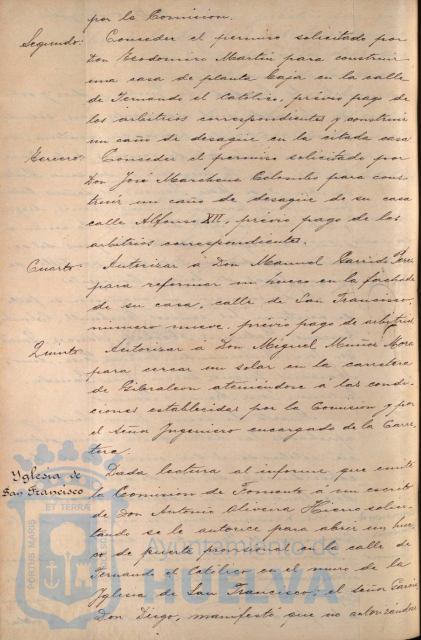 por la Comision.
Segundo: Conceder el permiso solicitado por
Don Teodomiro Martin para construir
una casa de planta baja en la calle
de Fernando el Católico, prévio pago de
los arbitrios correspondientes y construir
un caño de desagüe en la citada casa
Tercero: Conceder el permiso solicitado por
Don José Marchena Colombo para cons-
truir un caño de desagüe de su casa
calle Alfonso XII, prévio pago de los
arbitrios correspondientes.
Cuarto: Autorizar á Don Manuel Garrido Perez
para reformar un hueco en la fachada
de su casa, calle de San Francisco,
numero nueve, prévio pago de arbitrios
Quinto: Autorizar á Don Miguel Muñoz Mora
para cercar un solar en la carretera
de Gibraleon ateniéndose á las condi-
ciones establecidas por la Comision y por
el Señor Ingeniero encargado de la Carre-
tera.
Yglesia de
San Francisco
Dada lectura al informe que emite
la Comision de Fomento á un escrito
de Don Antonio Oliveira Hierro solici-
tando se le autorice para abrir un hue-
co de puerta provisional en la calle de
Fernando el Católico en el muro de la
Yglesia de San Francisco; el señor Garcia
Don Diego, manifestó que no autorizándose
PORTUS MARIS
ET TERRA
Ayuntamiento de
HUELVA